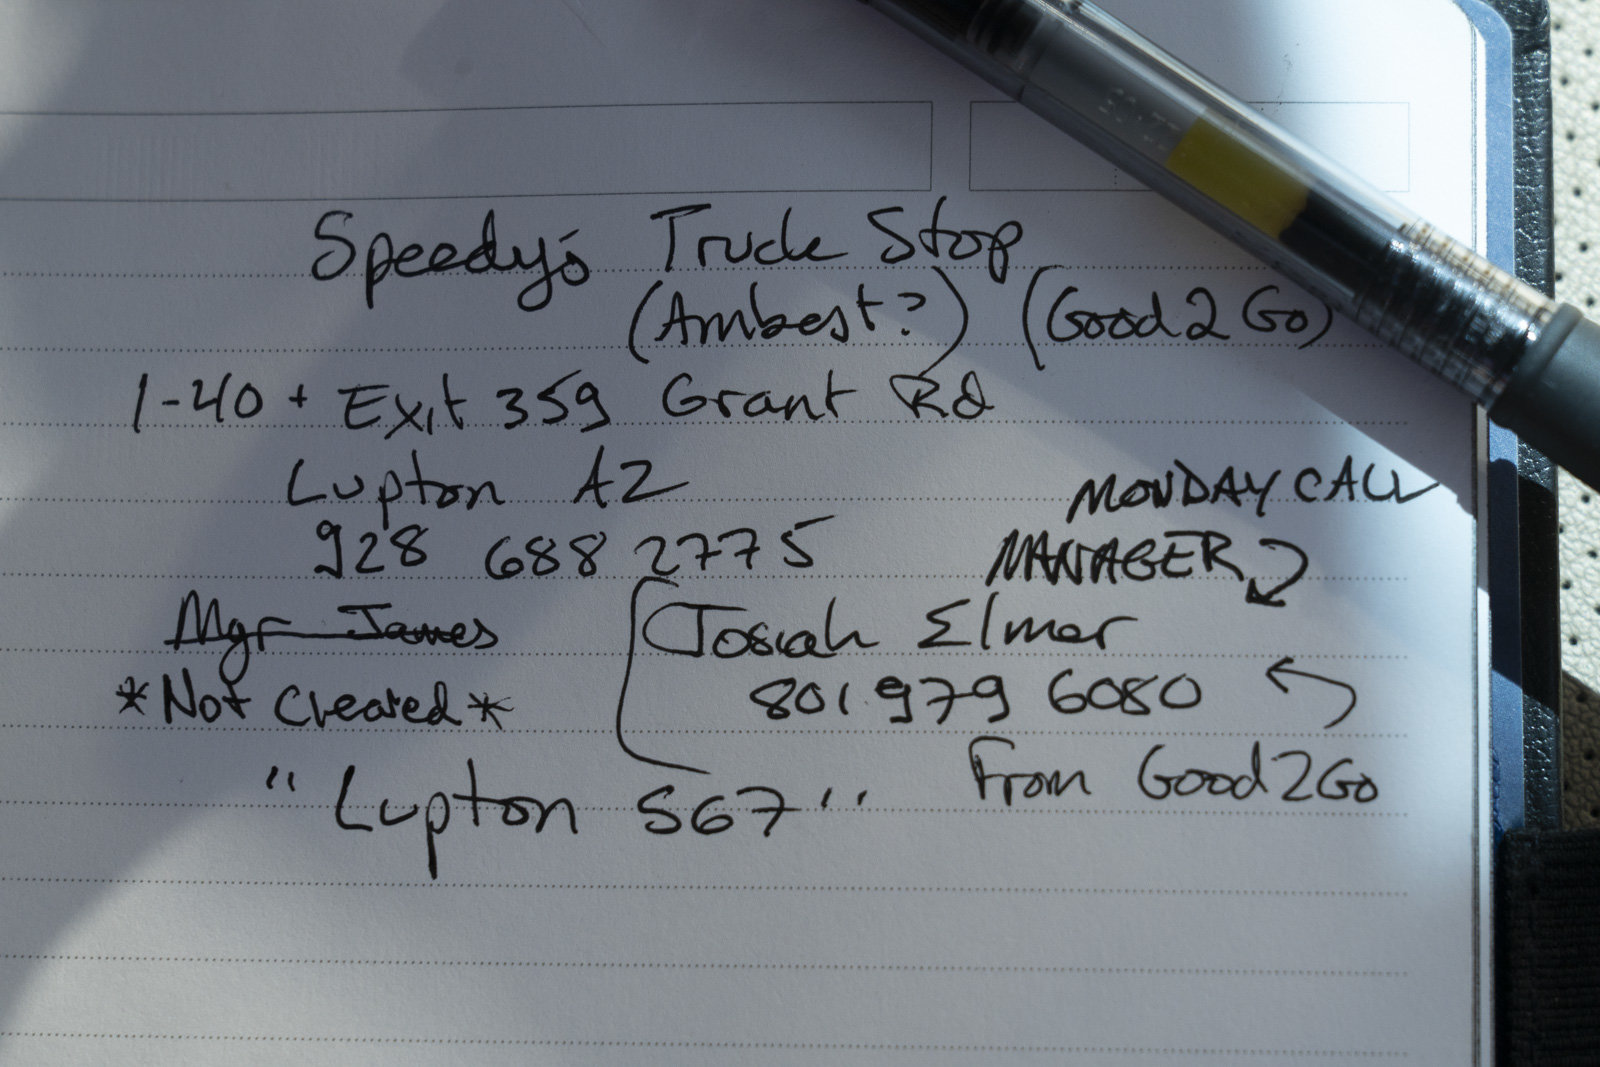 Speedy's Truck Stop
(Ambest?) (Good2Go)
I-40 + Exit 359 Grant Rd
Lupton AZ
MONDAY CALL
928 688 2775
MANAGER
Mgr James
Josiah Elmer
*Not Created*
801 979 6080
From Good2Go
"Lupton 567"